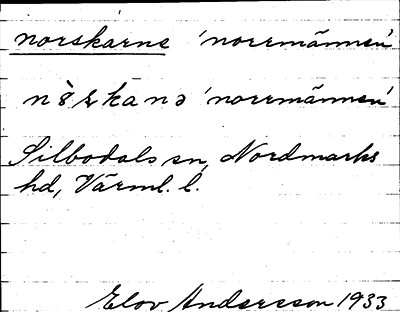 norskarne 'norrmännen'
'norrmännen'
Silbodals sn, Nordmarks
hd, Värml. l.
Elov Andersson 1933